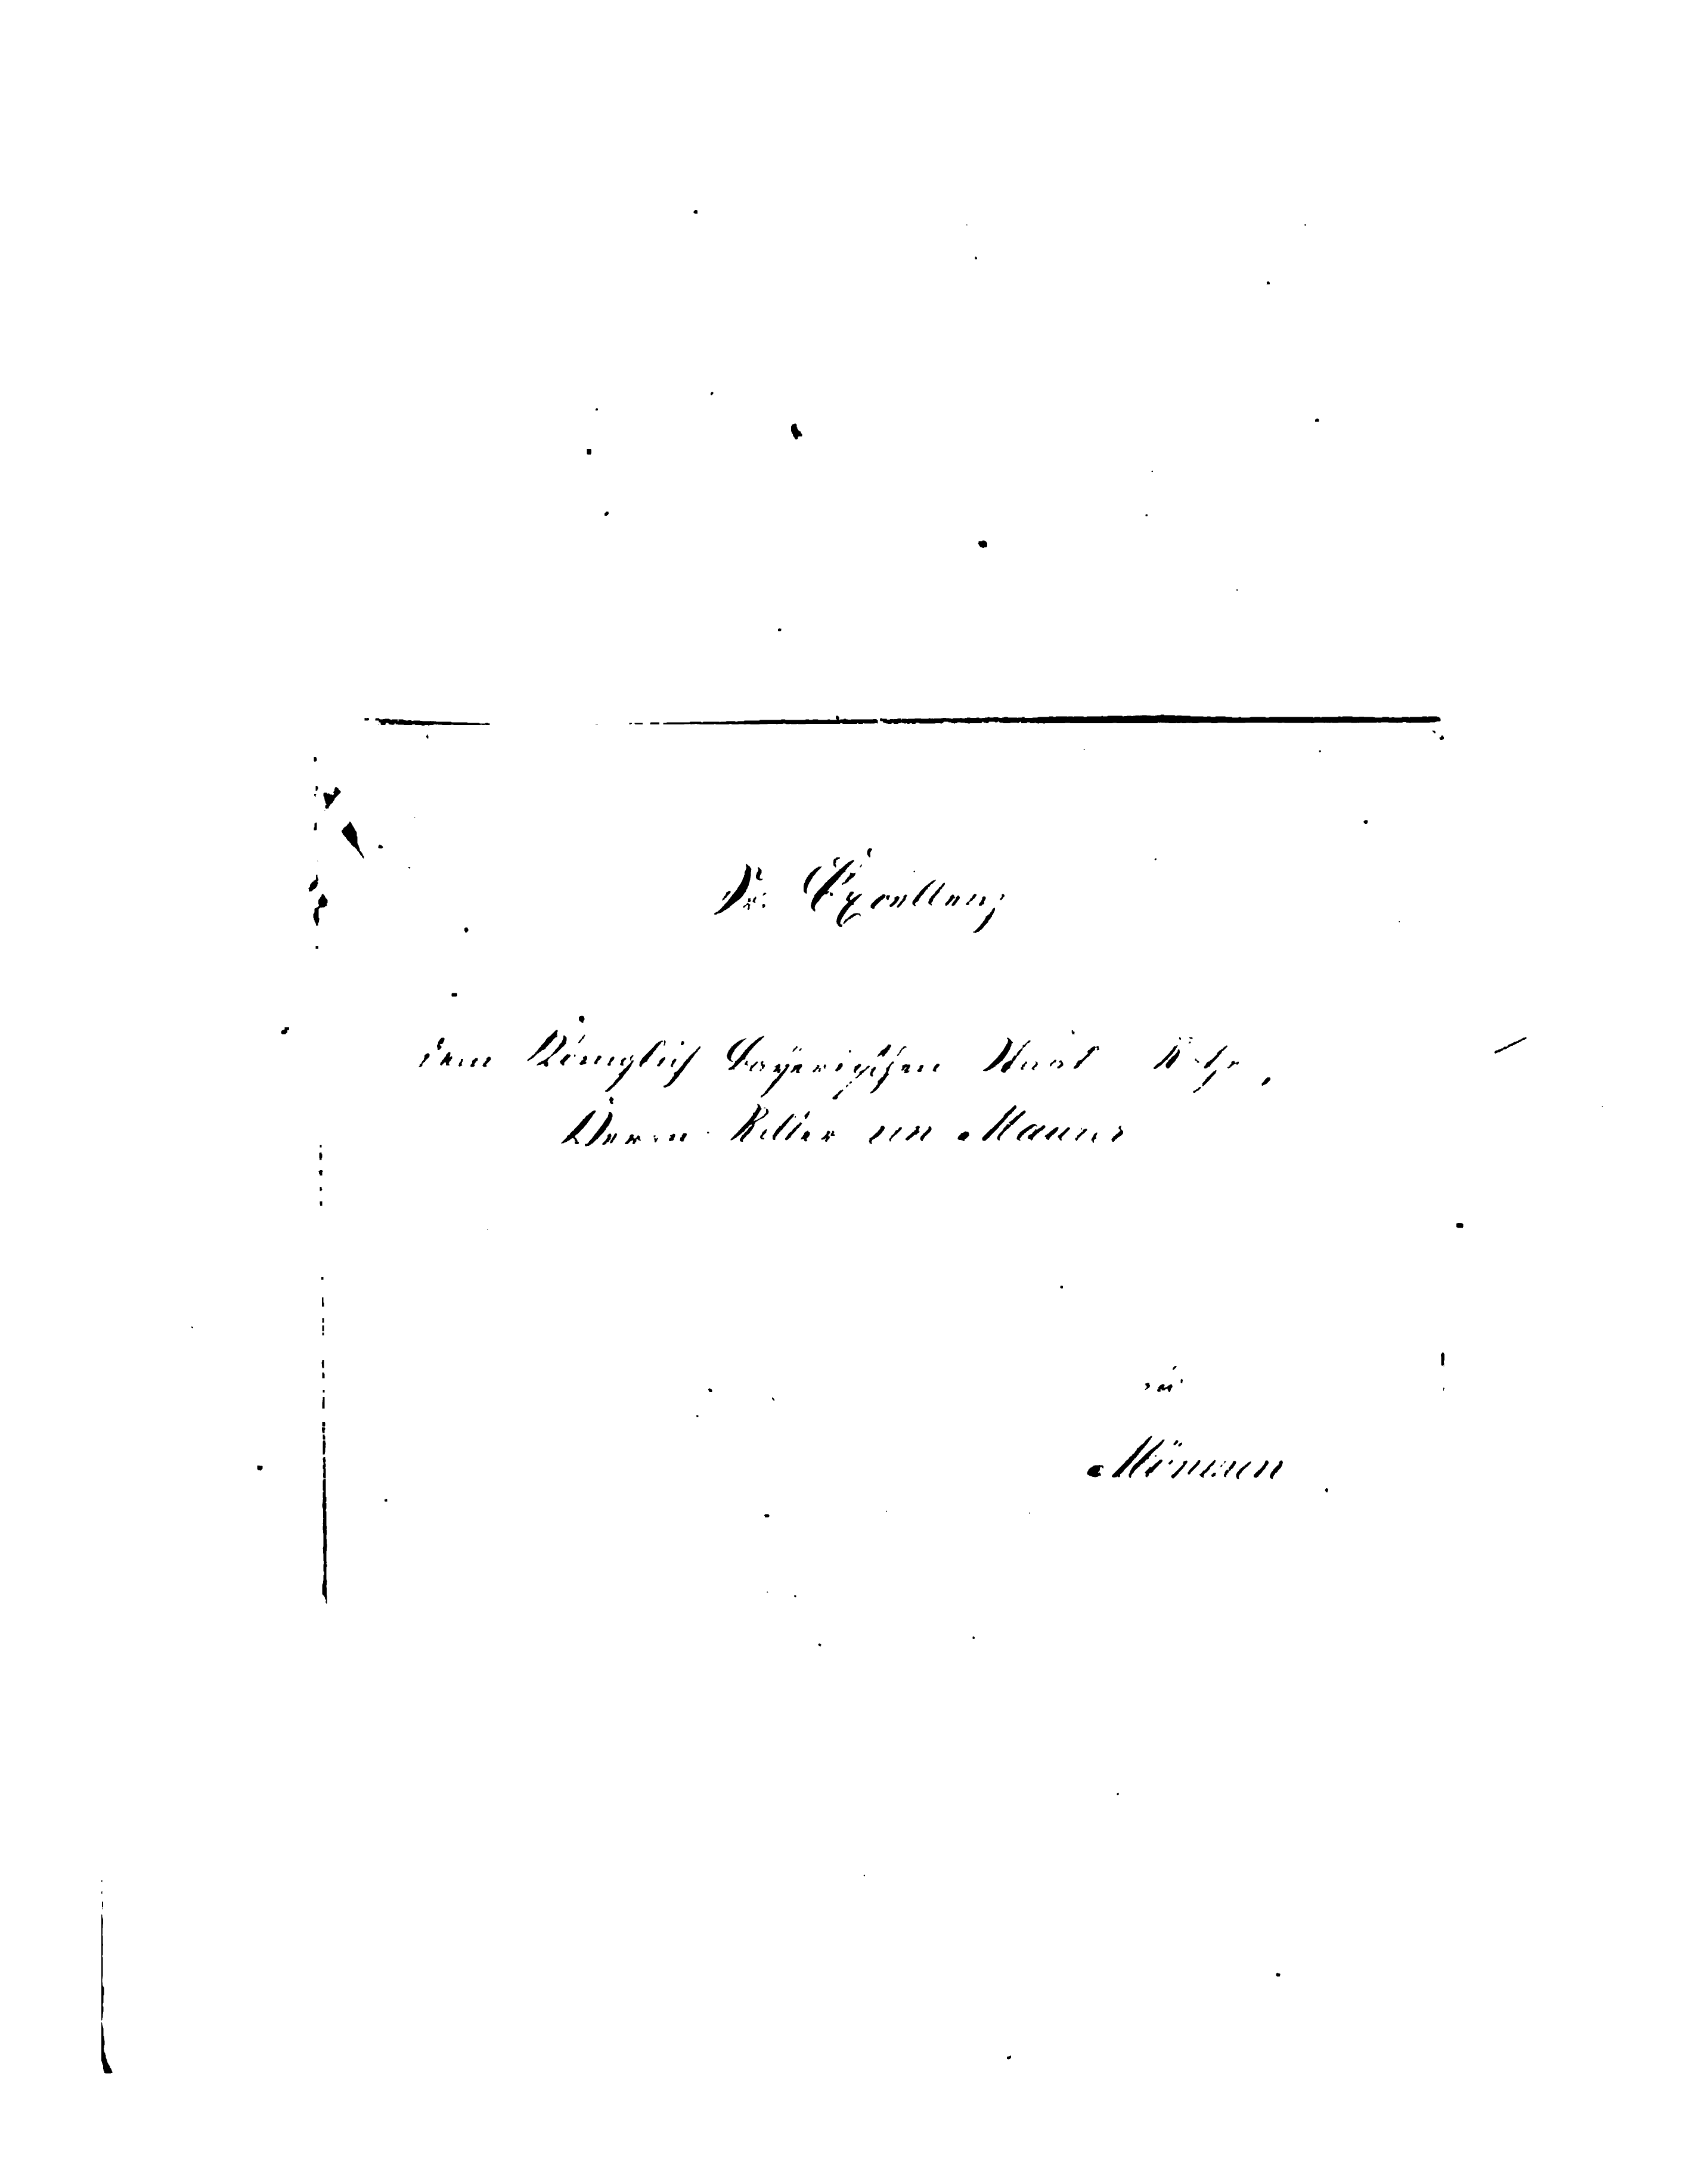 Sr. Exzellenz
dem Königlich Bayerischen Staats Rathe,
Herrn Ritter von Maurer
in
München